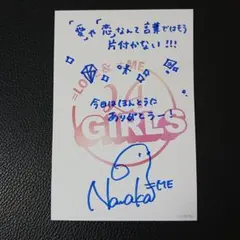 「愛」や「恋」なんて言葉ではもう
片付かない!!!
=LO & ME
24
GIRLS
今日はほんとうに
ありがとうー!
Nanaka
=ME